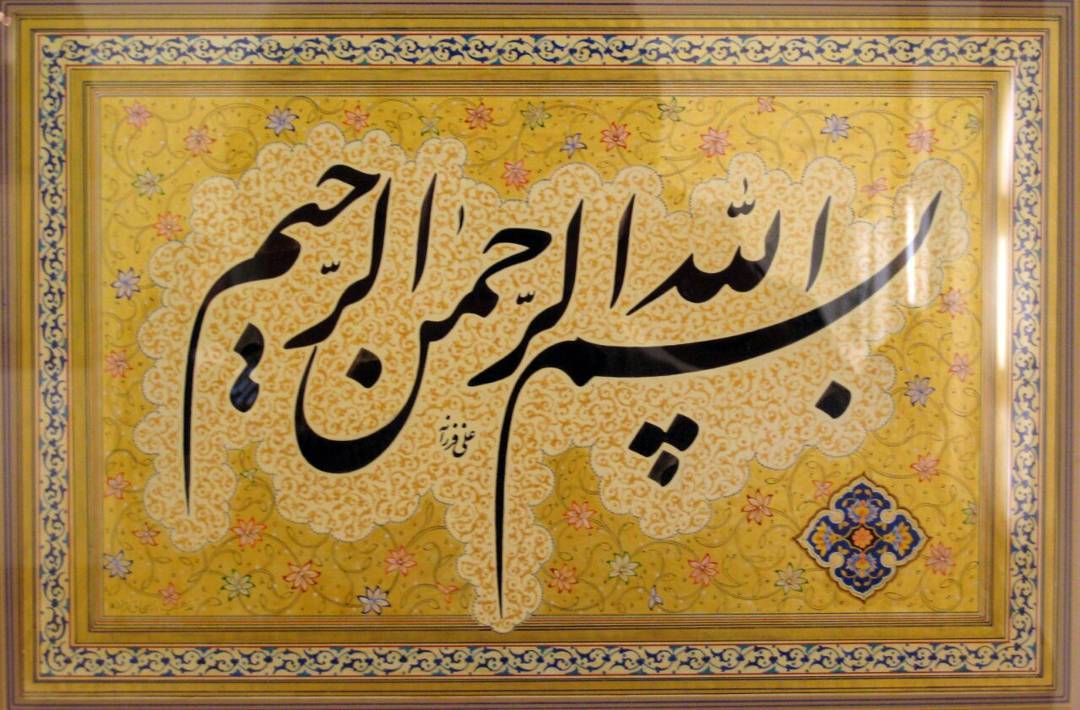 بسم الله الرّحمٰن الرّحیم
علی فرزانه